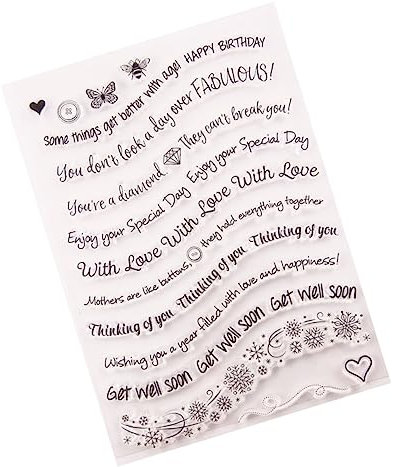 Some things get better with age! HAPPY BIRTHDAY
You don't look a day over FABULOUS!
You're a diamond They can't break you!
Enjoy your Special Day Enjoy your Special Day
With Love With Love With Love
Mothers are like buttons, they hold everything together
Thinking of you Thinking of you Thinking of you
Wishing you a year filled with love and happiness!
Get well soon Get well soon Get well soon